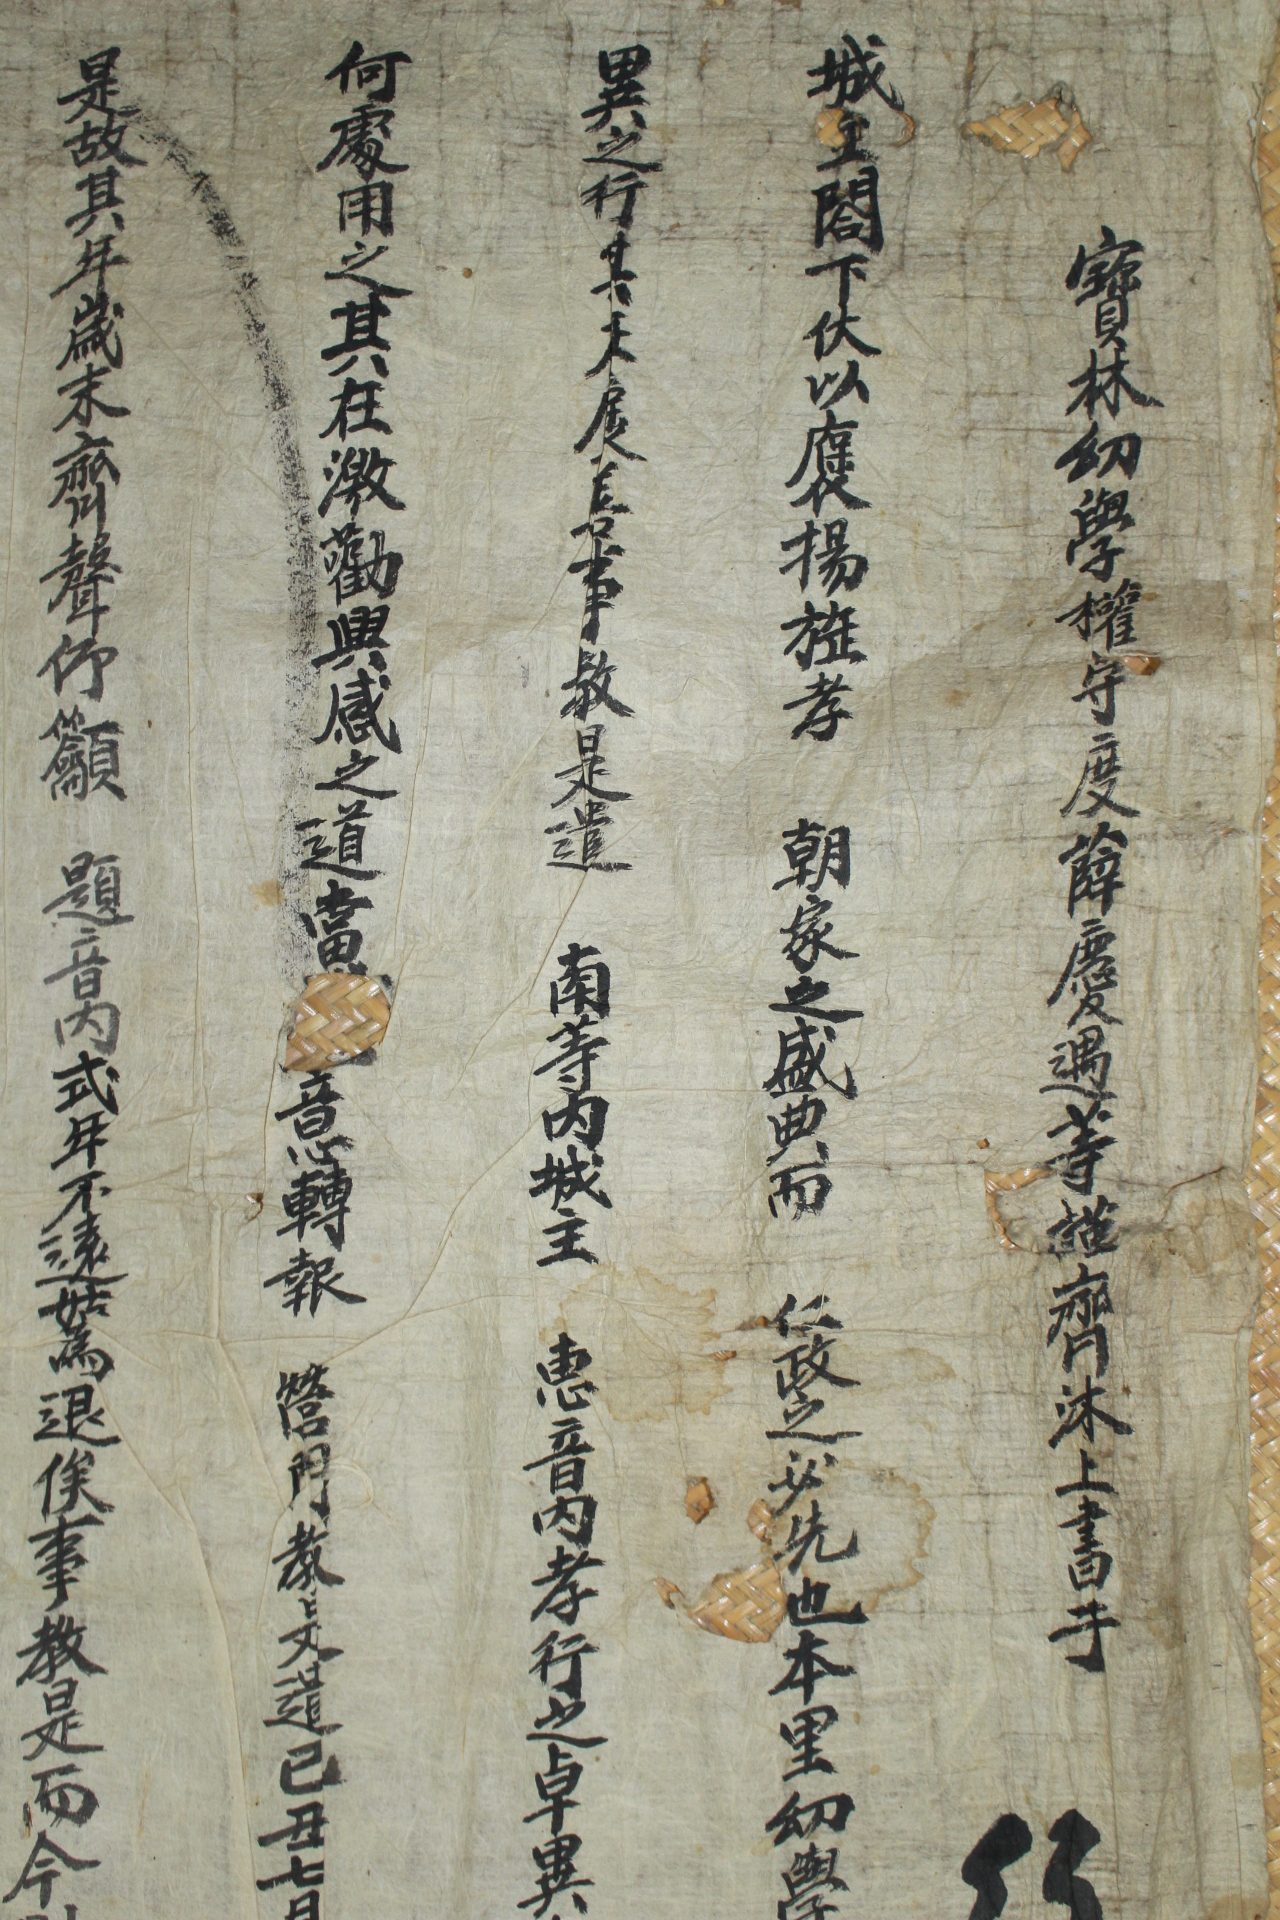 寶林幼學權守度薛慶遇等謹齊沐上書于
城主閤下伏以襃揚旌孝 朝家之盛典而 仁政之必先也本里幼學
異之行其未展善事敎是遣 南等內城主 惠音內孝行之卓異
何處用之其在激勸興感之道當 意轉報 營門敎是遣己丑七月
是故其年歲末齊聲仰籲 題音內式年不遠姑爲退俟事敎是而今